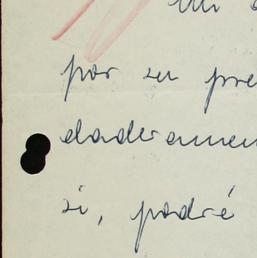 por su pre
daderamen
si, podré